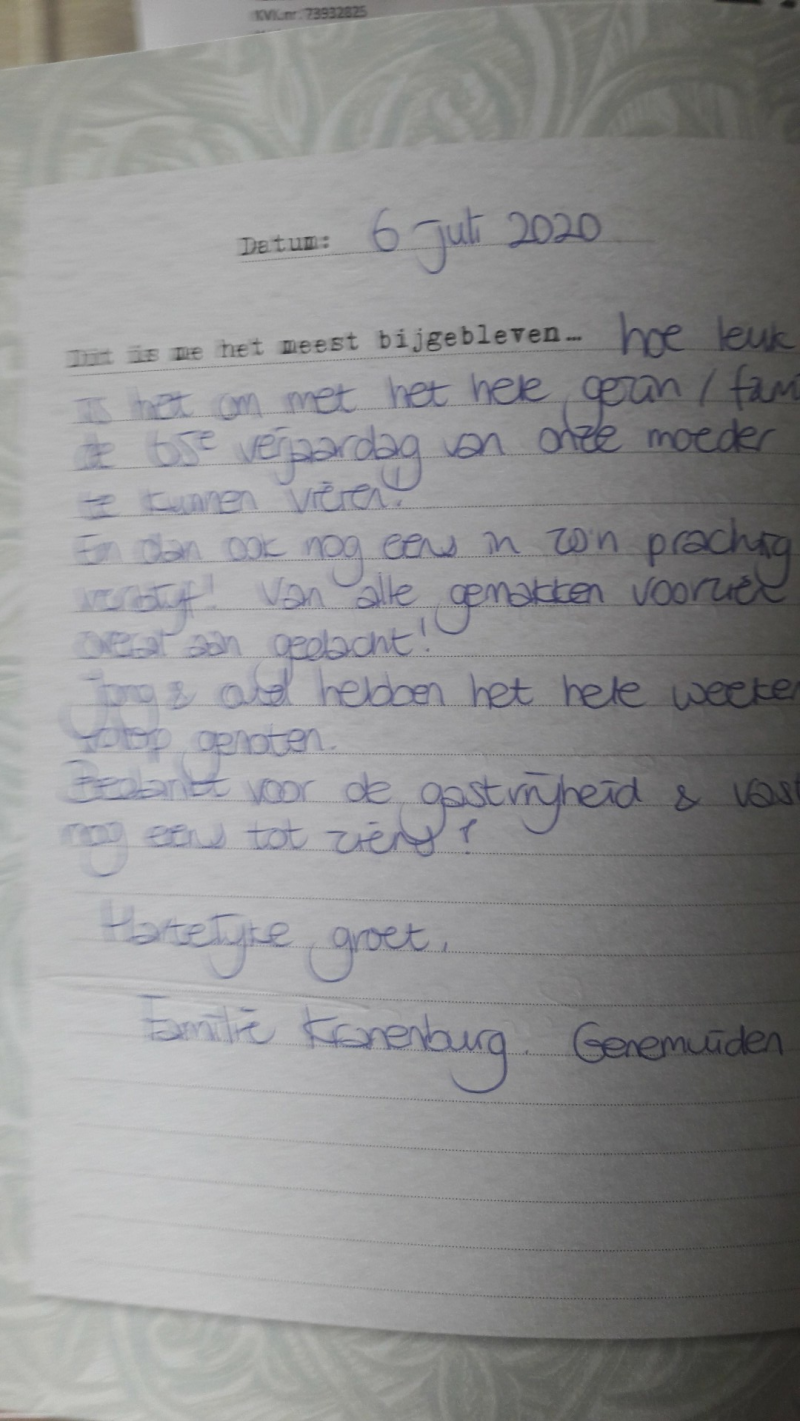 KVK.nr: 73932825
Datum: 6 juli 2020
Dit is me het meest bijgebleven... hoe leuk
is het om met het hele gezin / fam
de 65e verjaardag van onze moeder
te kunnen vieren!
En dan ook nog eens in zo'n prachtig
verblijf! Van alle gemakken voorzien
overal aan gedacht!
Jong & oud hebben het hele weeken
volop genoten.
Bedankt voor de gastvrijheid & vast
nog eens tot ziens!
Hartelijke groet,
Familie Kronenburg. Genemuiden